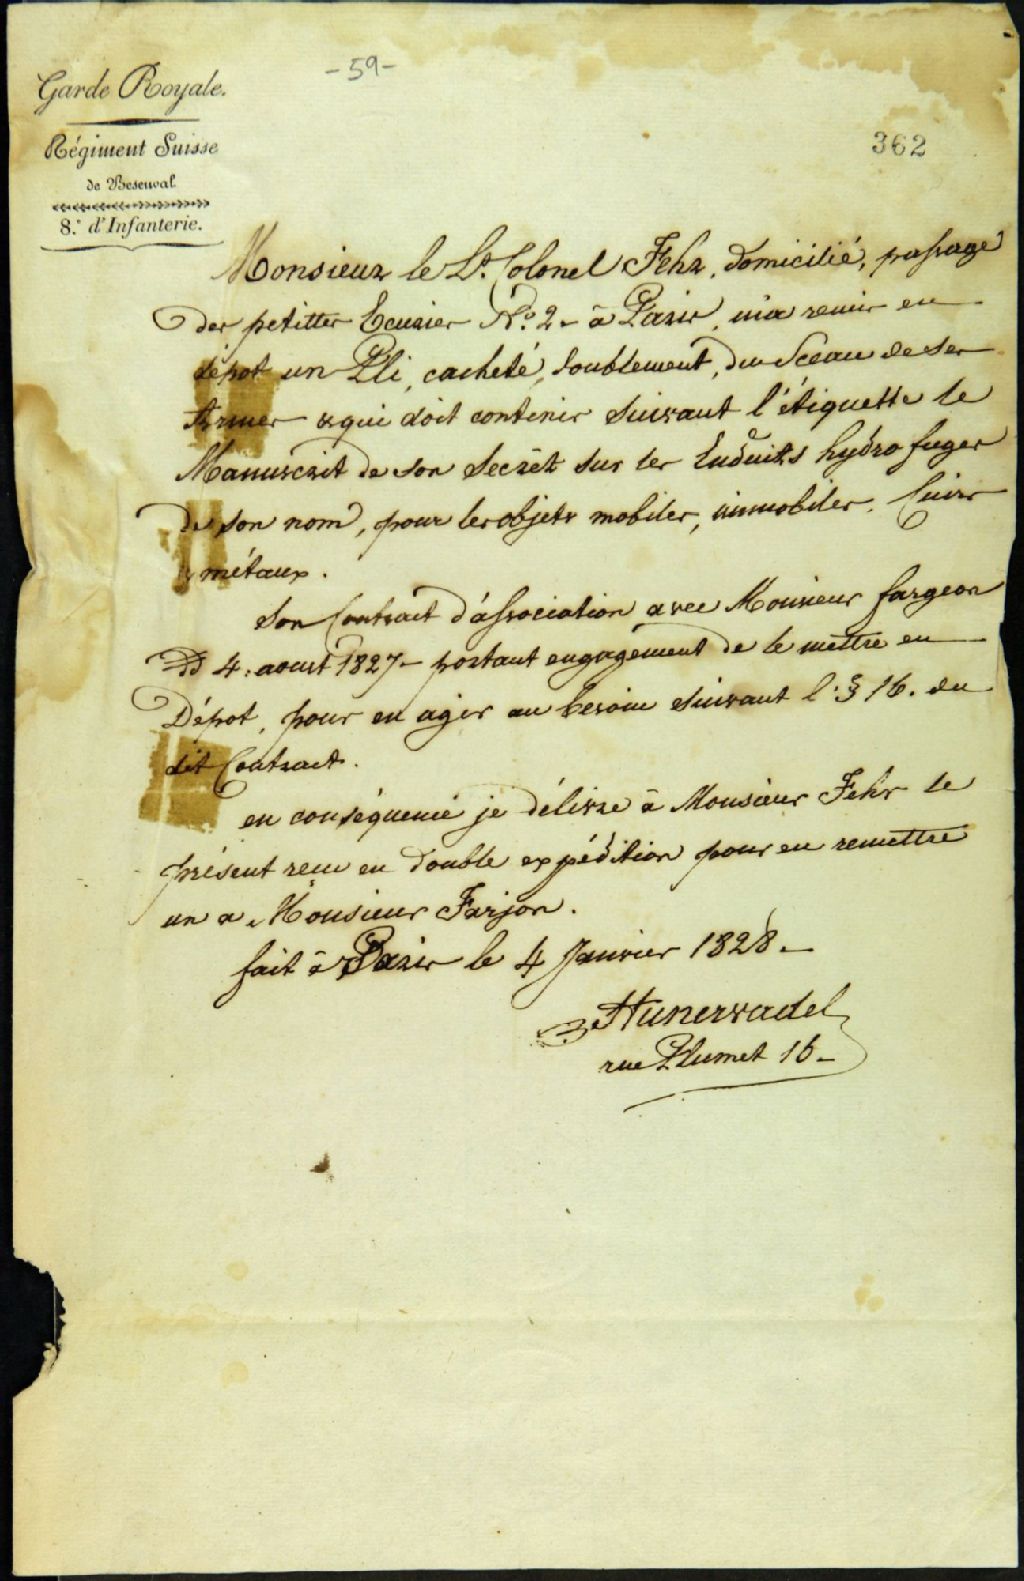 Garde Royale.
- 59 -
Régiment Suisse
de Besenval
8.e d'Infanterie.
362
Monsieur le Lt. Colonel Fehr, domicilié, passage
des petittes Ecuries No. 2 - à Paris, m'a remis en
dépot un Pli, cacheté, doublement, du Sceau de ses
Armes & qui doit contenir suivant l'étiquette le
Manuscrit de son Secrèt sur les Enduits hydrofuges
de son nom, pour les objets mobiles, immobiles, Cuirs
métaux.
Son Contract d'association avec Monsieur fargeon
4. aoust 1827 - portant engagement de le mettre en
Dépot, pour en agir au besoin suivant l: § 16. du
dit Contract.
en conséquence je délivre à Monsieur Fehr le
présent recu en double expédition pour en remettre
un a Monsieur Farjon.
fait à Paris le 4 Janvier 1828 -
Hunerwadel
rue Plumet 16 -